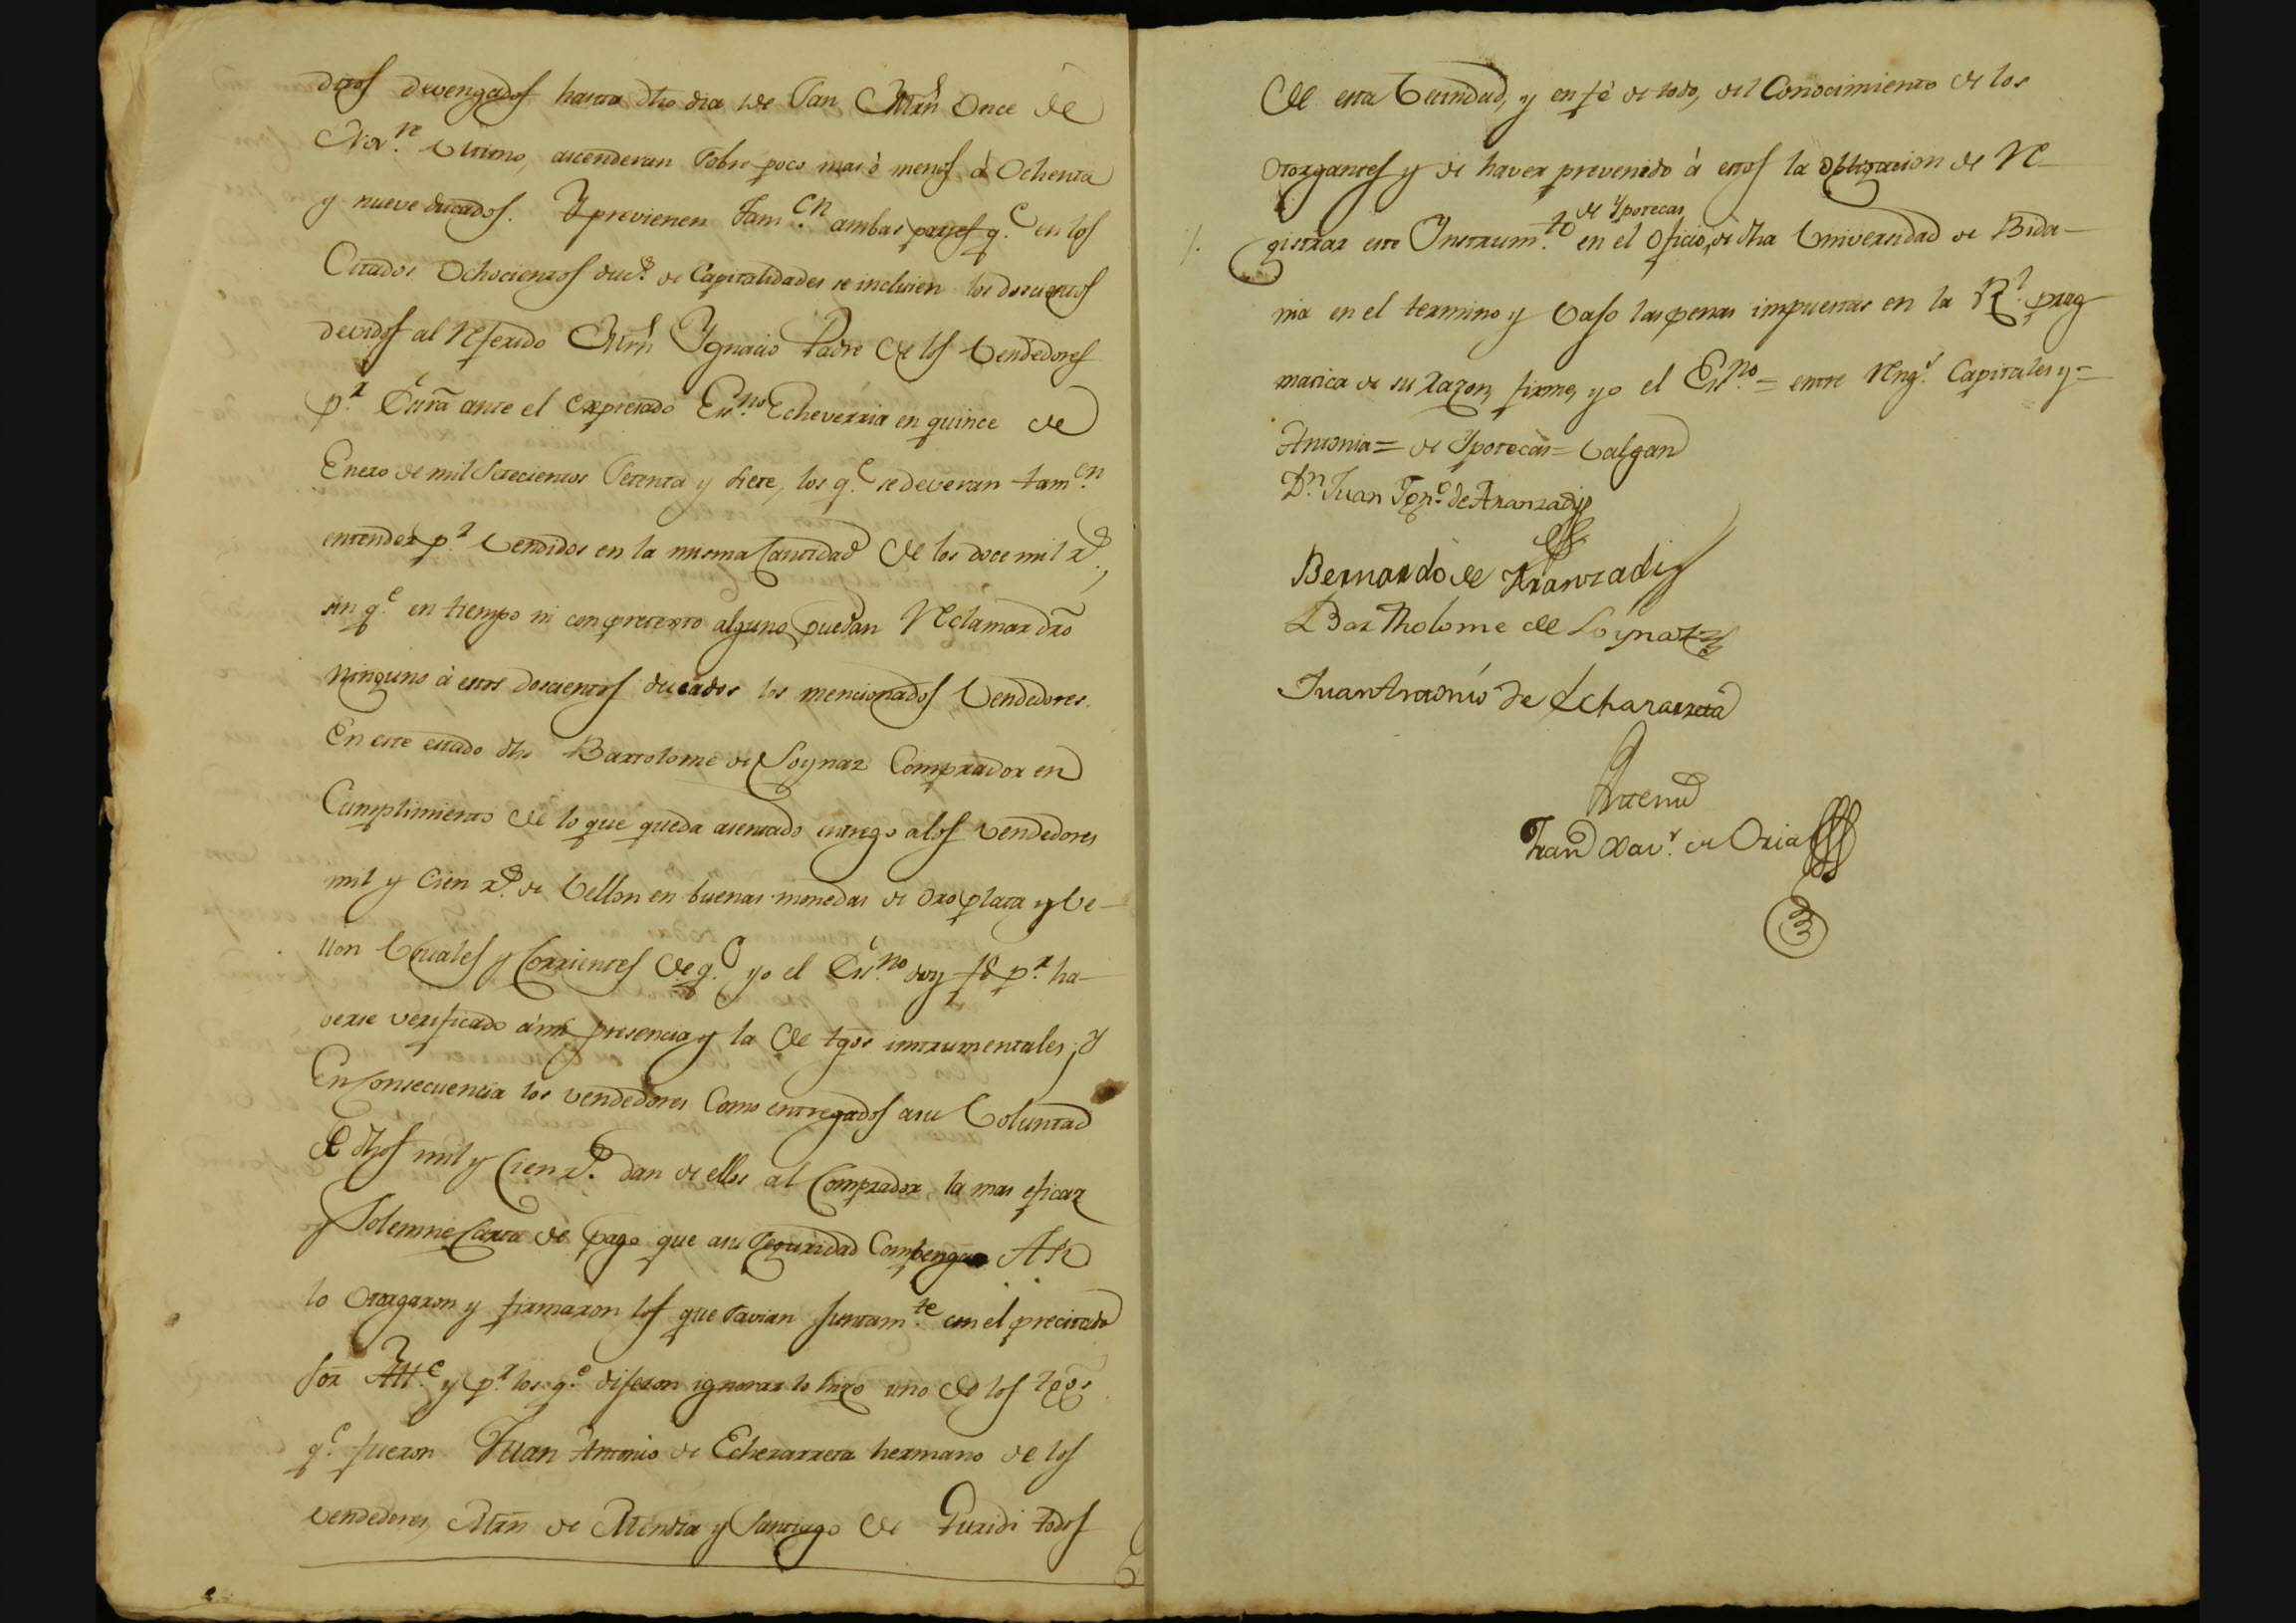 ditos devengados hasta dho dia de San Mrn Once de
Nov.re Ultimo, ascenderan sobre poco mas ò menos à Ochenta
y nueve ducados. Y previenen tam.en ambas partes q.e en los
Citados Ochocientos duc.s de Capitalidades se incluien los doscientos
devidos al Referido Mrn Ygnacio Padre de los Vendedores
p.r Escrã ante el expresado Es.no Echeverria en quince de
Enero de mil Setecientos Setenta y siete, los q.e se deveran tam.en
entender p.r Vendidos en la misma Cantidad de los doce mil r.s,
sin q.e en tiempo ni con pretexto alguno puedan Reclamar drõ
Ninguno à estos doscientos ducados los mencionados Vendedores.
En este estado dho Bartolome de Loynaz Comprador en
Cumplimiento de lo que queda asentado entrego a los Vendedores
mil y Cien r.s de Vellon en buenas monedas de Oro plata y Ve-
llon Usuales y Corrientes de q.e yo el Es.no doy fe p.r ha-
verse verificado à mi presencia y la de tgos instrumentales; Y
En Consecuencia los vendedores Como entregados a su Voluntad
de dhos mil y Cien r.s dan de ellos al Comprador la mas eficaz
y Solemne Carta de pago que a su Seguridad Combenga Asi
lo Otorgaron y firmaron los que savian Juntam.te con el precitado
sor Alc.e y p.r los q.e dijeron ignorar lo hizo uno de los tgos
q.e fueron Juan Antonio de Echezarreta hermano de los
vendedores, Mrñ de Mendia y Santiago de Guridi todos
de esta Vecindad, y en fè de todo, del Conocimiento de los
Otorgantes y de haver prevenido à estos la Obligacion de Re-
de Ypotecas
gistrar este Instrum.to en el Oficio, de dha Universidad de Bida-
nia en el termino y vajo las penas impuestas en la R.l prag
matica de su razon, firme, yo el Es.no = entre Reng.s Capitales y =
Antonia = de Ypotecas = Valgan
D.n Juan Ign.o de Aranzadi
Bernardo de Aranzadi
Bartholome de Loynaz
Juan Antonio de Echazarreta
Antemi
Fran.co Xav.r de Oria